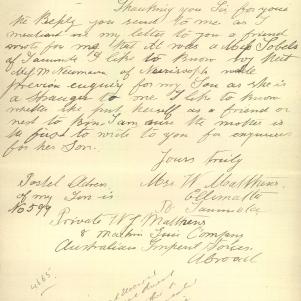 Thanking you Sir for your
the Reply you send to me as I
mention in my letter to you a friend
wrote for me that it was a Miss Tobels
of Tanunda I like to know by next
Miss W Neumann of Nuriootpa made
previous enquiry for my Son as she is
a stranger to me I like to know
wrote she put herself as a friend or
next to Kin I am and the mother is
the first to write to you for enquiries
for her Son.
Yours truly
Mrs W Matthews
Tanunda
Postel Adress
of my Son is
No 599
Private W J Matthews
Machin Guns Company
Australian Imperil Forces
Abroad